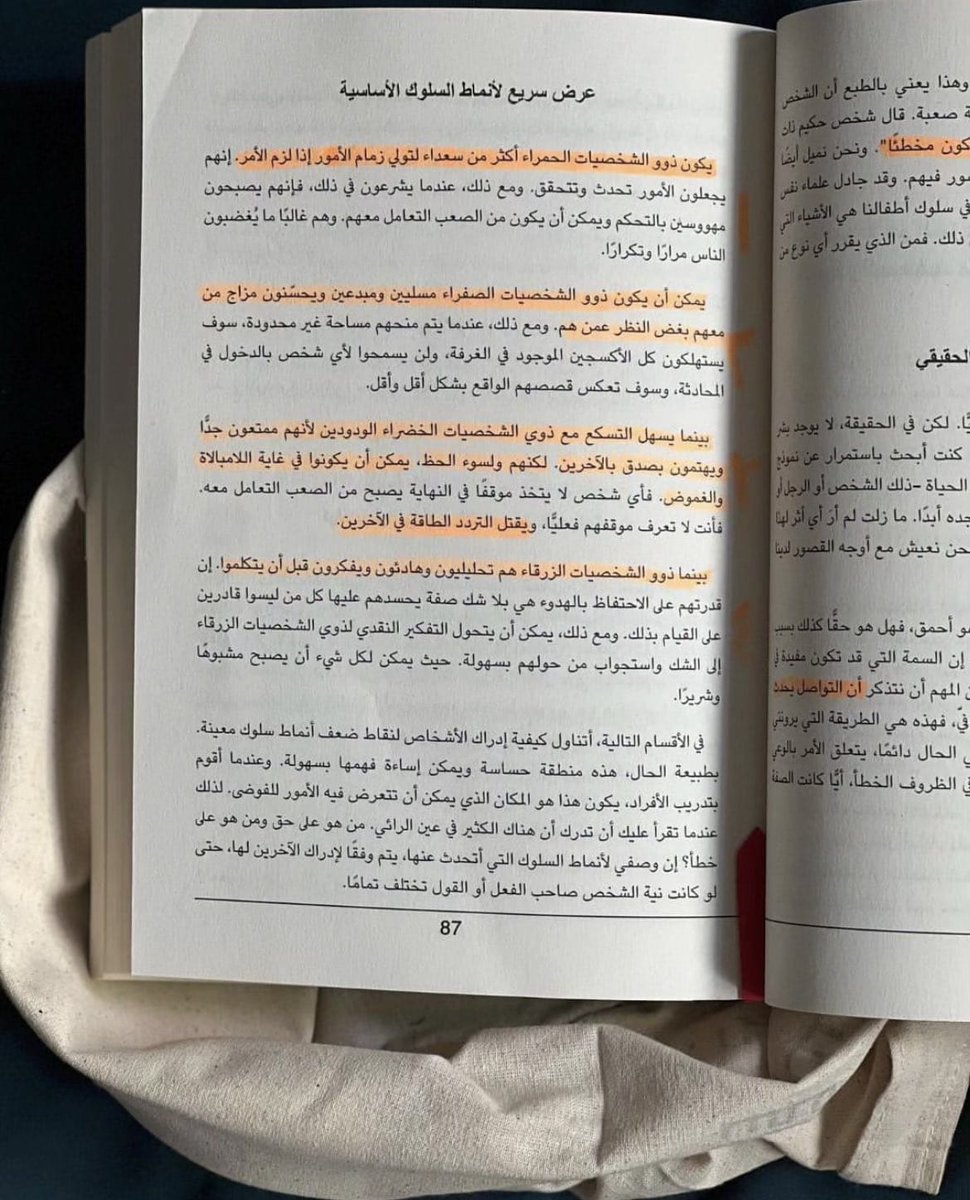 وهذا يعني بالطبع أن الشخص
صعبة. قال شخص حكيم ذات
كون مخطئًا". ونحن نميل أيضًا
صور فيهم. وقد جادل علماء نفس
في سلوك أطفالنا هي الأشياء التي
ذلك. فمن الذي يقرر أي نوع من
الحقيقي
لكن في الحقيقة، لا يوجد بشر
كنت أبحث باستمرار عن نموذج
الحياة –ذلك الشخص أو الرجل أو
جده أبدًا. ما زلت لم أرَ أي أثر لهذا
حن نعيش مع أوجه القصور لدينا
و أحمق، فهل هو حقًّا كذلك بسبب
إن السمة التي قد تكون مفيدة في
المهم أن نتذكر أن التواصل يحدث
فيَّ، فهذه هي الطريقة التي يرونني
الحال دائمًا، يتعلق الأمر بالوعي
في الظروف الخطأ، أيًّا كانت الصفة
عرض سريع لأنماط السلوك الأساسية
يكون ذوو الشخصيات الحمراء أكثر من سعداء لتولي زمام الأمور إذا لزم الأمر. إنهم
يجعلون الأمور تحدث وتتحقق. ومع ذلك، عندما يشرعون في ذلك، فإنهم يصبحون
مهووسين بالتحكم ويمكن أن يكون من الصعب التعامل معهم. وهم غالبًا ما يُغضبون
الناس مرارًا وتكرارًا.
يمكن أن يكون ذوو الشخصيات الصفراء مسليين ومبدعين ويحسّنون مزاج من
معهم بغض النظر عمن هم. ومع ذلك، عندما يتم منحهم مساحة غير محدودة، سوف
يستهلكون كل الأكسجين الموجود في الغرفة، ولن يسمحوا لأي شخص بالدخول في
المحادثة، وسوف تعكس قصصهم الواقع بشكل أقل وأقل.
بينما يسهل التسكع مع ذوي الشخصيات الخضراء الودودين لأنهم ممتعون جدًّا
ويهتمون بصدق بالآخرين. لكنهم ولسوء الحظ، يمكن أن يكونوا في غاية اللامبالاة
والغموض. فأي شخص لا يتخذ موقفًا في النهاية يصبح من الصعب التعامل معه.
فأنت لا تعرف موقفهم فعليًّا، ويقتل التردد الطاقة في الآخرين.
بينما ذوو الشخصيات الزرقاء هم تحليليون وهادئون ويفكرون قبل أن يتكلموا. إن
قدرتهم على الاحتفاظ بالهدوء هي بلا شك صفة يحسدهم عليها كل من ليسوا قادرين
على القيام بذلك. ومع ذلك، يمكن أن يتحول التفكير النقدي لذوي الشخصيات الزرقاء
إلى الشك واستجواب من حولهم بسهولة. حيث يمكن لكل شيء أن يصبح مشبوهًا
وشريرًا.
في الأقسام التالية، أتناول كيفية إدراك الأشخاص لنقاط ضعف أنماط سلوك معينة.
بطبيعة الحال، هذه منطقة حساسة ويمكن إساءة فهمها بسهولة. وعندما أقوم
بتدريب الأفراد، يكون هذا هو المكان الذي يمكن أن تتعرض فيه الأمور للفوضى. لذلك
عندما تقرأ عليك أن تدرك أن هناك الكثير في عين الرائي. من هو على حق ومن هو على
خطأ؟ إن وصفي لأنماط السلوك التي أتحدث عنها، يتم وفقًا لإدراك الآخرين لها، حتى
لو كانت نية الشخص صاحب الفعل أو القول تختلف تمامًا.
87